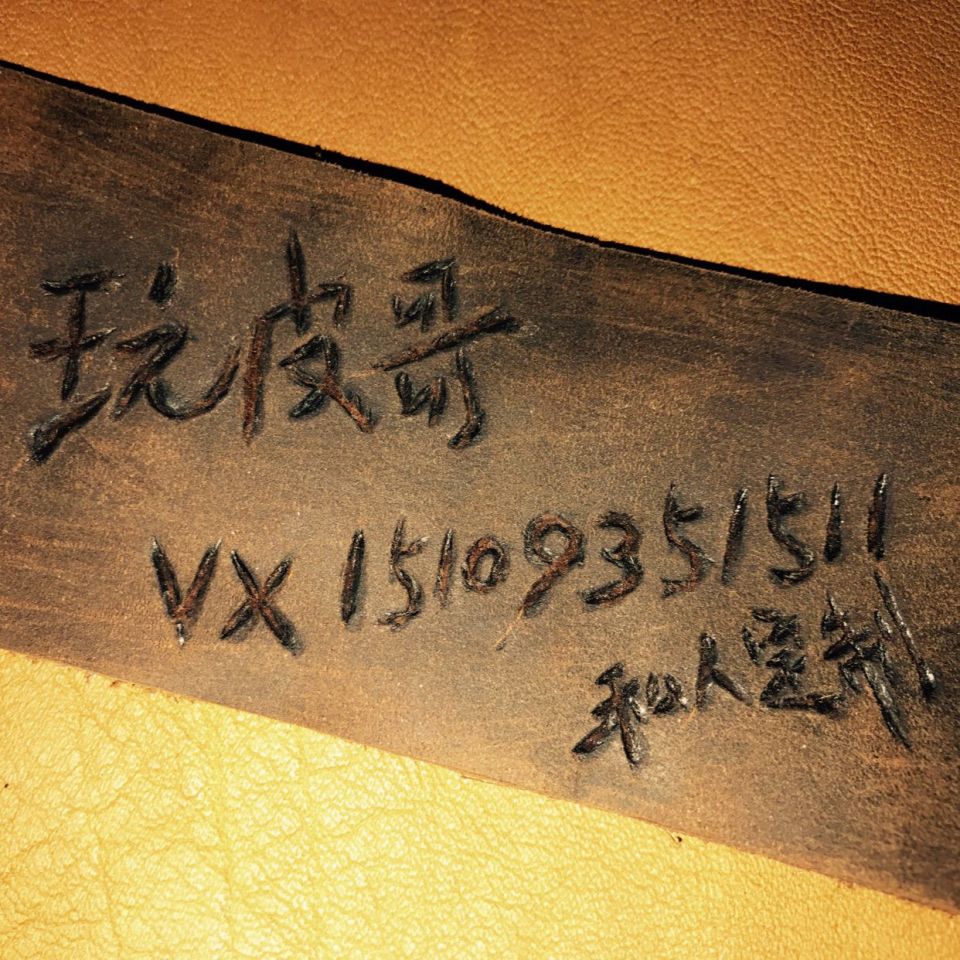 玩皮哥
VX 15109351511
私人定制